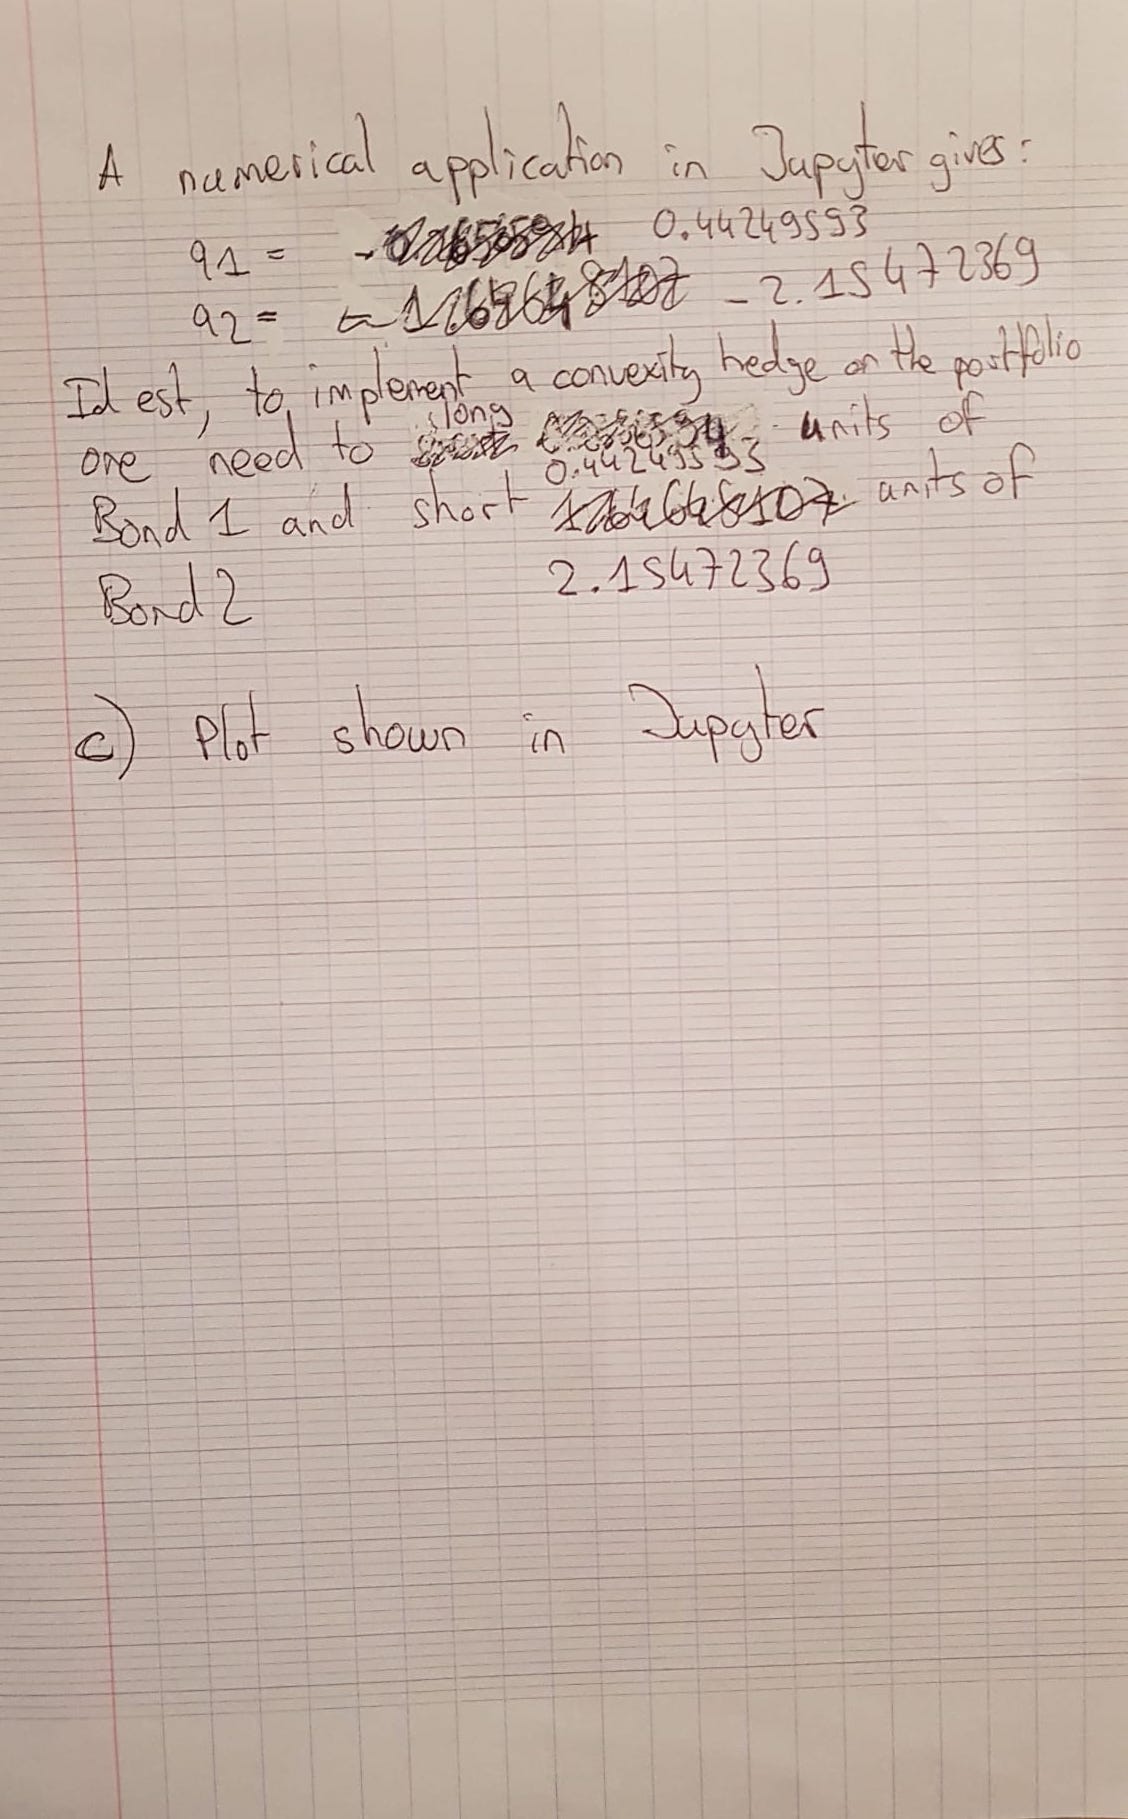 A numerical application in Jupyter gives:
q1 = 0.44249593
q2 = -2.15472369
Id est, to implement a convexity hedge on the portfolio
one need to long 0.44249593 units of
Bond 1 and short 2.15472369 units of
Bond 2
c) Plot shown in Jupyter